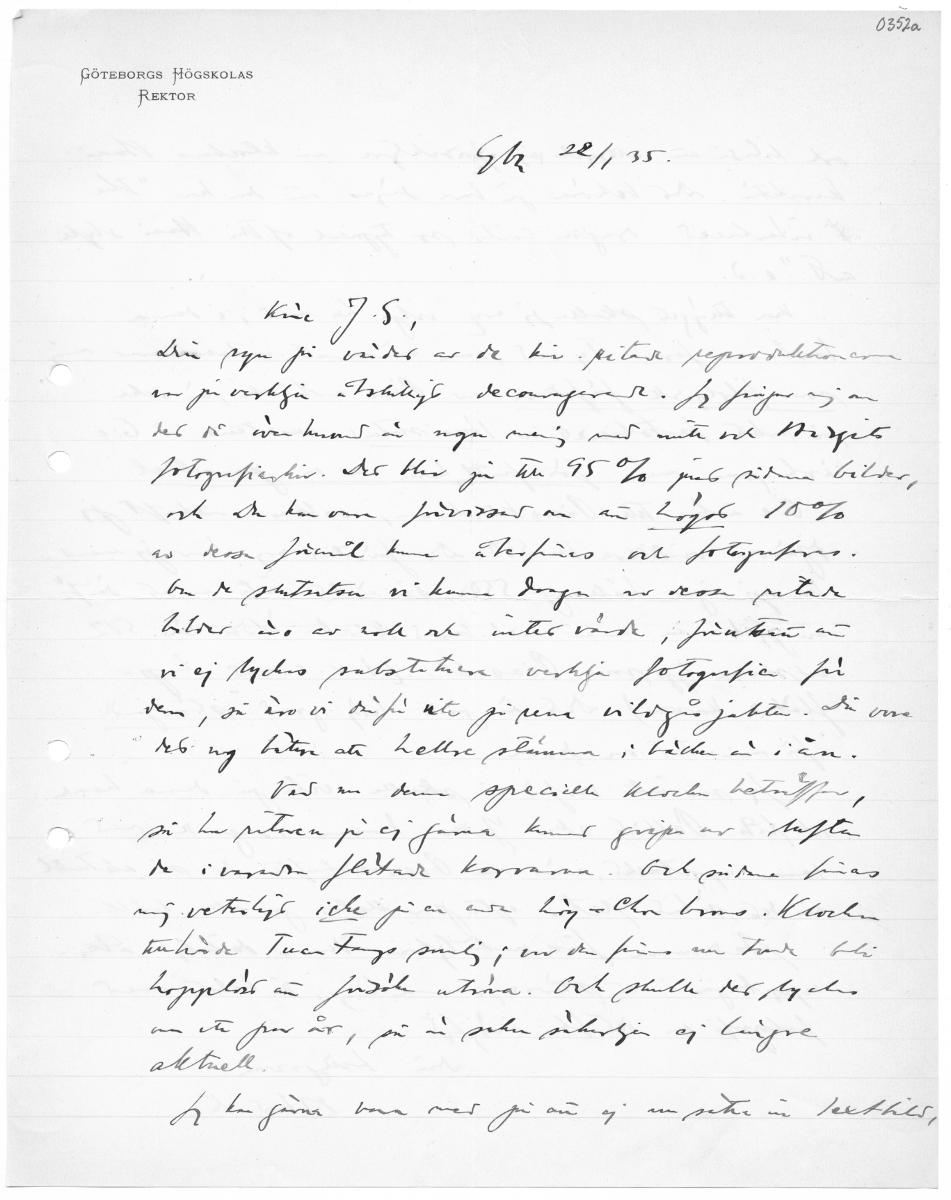 0352a
GÖTEBORGS HÖGSKOLAS
REKTOR
Gbg 22/1 35.
Käre J. G.,
Din syn på värdet av de kin. ritade reproduktionerna
var ju verkligen åtskilligt decouragerande. Jag frågar mig om
det då överhuvud är någon mening med mitt och Birgits
fotograferande. Det blir ju till 95% just sådana bilder,
och Du kan vara förvissad om att högst 10%
av dessa föremål kunna återfinnas och fotograferas.
Om de slutsatser vi kunna draga av dessa ritade
bilder äro av noll och intet värde, förutsatt att
vi ej lyckas substituera verkliga fotografier för
dem, så äro vi därför ute på rena vildgåsjakten. Då vore
det nog bättre att hellre stämma i bäcken än i ån.
Vad nu denna speciella klocka beträffar,
så har ritaren ju ej gärna kunnat gripa ur luften
de i varandra flätade korvarna. Och sådana finnas
mig veterligt icke på en enda hög-Chou brons. Klockan
tillhörde Tuan Fangs samling; var den finns nu torde bli
hopplöst att försöka utröna. Och skulle det lyckas
om ett par år, så är saken säkerligen ej längre
aktuell.
Jag kan gärna vara med på att ej nu sätta in textbild,